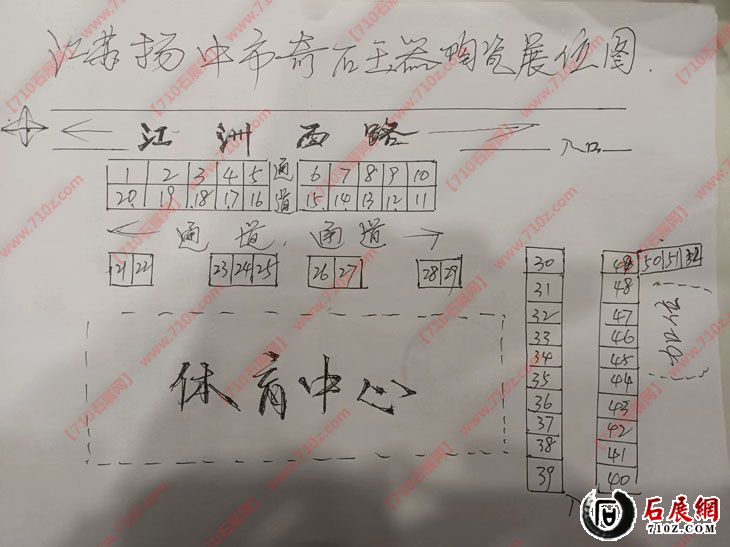 江苏扬中市奇石玉器陶瓷展位图.
江洲西路
入口
1 2 3 4 5 通道 6 7 8 9 10
20 19 18 17 16 15 14 13 12 11
通道. 通道
21 22 23 24 25 26 27 28 29
30 49 50 51 52
31 48
32 47
33 46
34 45
35 44
36 43
37 42
38 41
39 40
体育中心
石展網
710Z.COM
【710石展网】www.710z.com